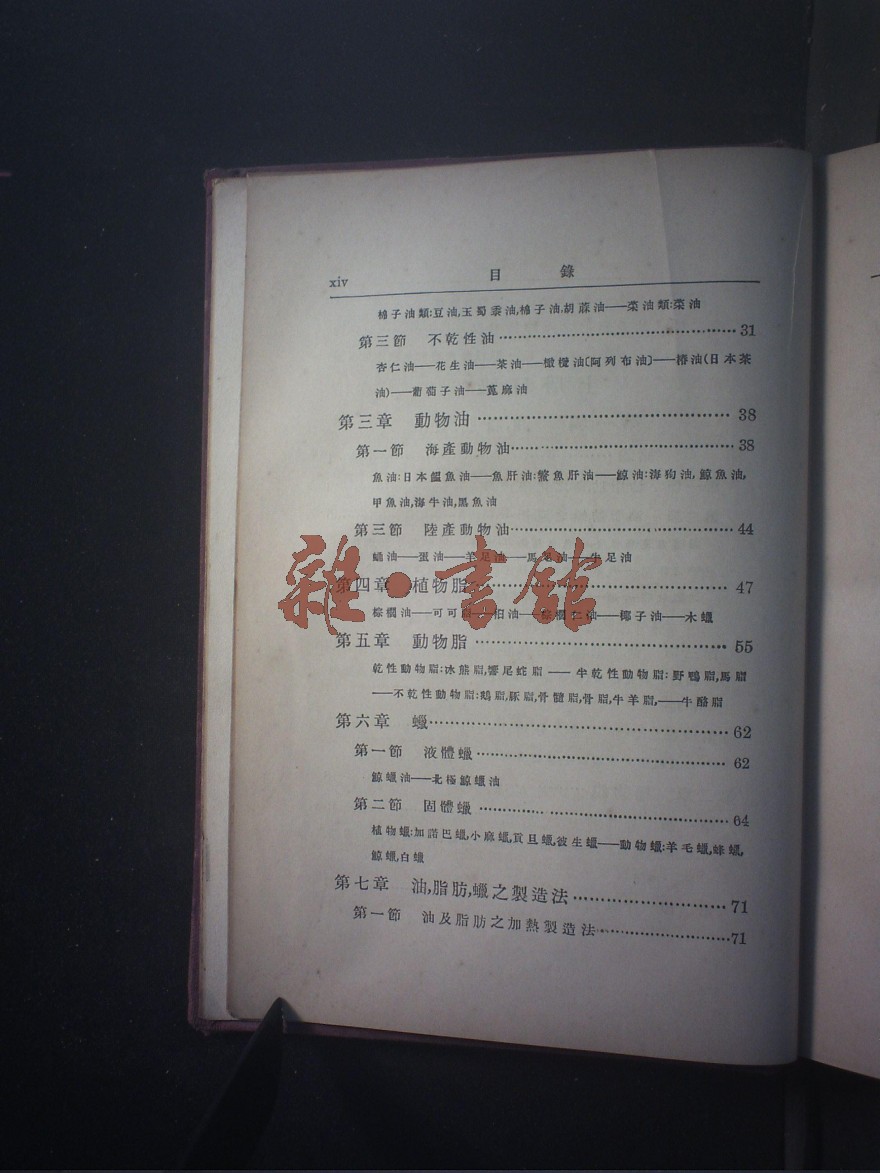 xiv 目錄
棉子油類:豆油,玉蜀黍油,棉子油,胡蔴油——菜油類:菜油
第三節 不乾性油 31
杏仁油——花生油——茶油——橄欖油(阿列布油)——椿油(日本茶
油)——葡萄子油——蓖麻油
第三章 動物油 38
第一節 海產動物油 38
魚油:日本鰮魚油——魚肝油:鱉魚肝油——鯨油:海狗油,鯨魚油,
甲魚油,海牛油,黑魚油
第三節 陸產動物油 44
油——蛋油——羊足油——馬足油——牛足油
第四章 植物脂 47
棕櫚油——可可脂——桕油——棕櫚仁油——椰子油——木蠟
第五章 動物脂 55
乾性動物脂:冰熊脂,響尾蛇脂——半乾性動物脂:野鴨脂,馬脂
——不乾性動物脂:鵝脂,豚脂,骨髓脂,骨脂,牛羊脂,——牛酪脂
第六章 蠟 62
第一節 液體蠟 62
鯨蠟油——北極鯨蠟油
第二節 固體蠟 64
植物蠟:加諾巴蠟,小麻蠟,貢旦蠟,彼生蠟——動物蠟:羊毛蠟,蜂蠟,
鯨蠟,白蠟
第七章 油,脂肪,蠟之製造法 71
第一節 油及脂肪之加熱製造法 71
雜·書館